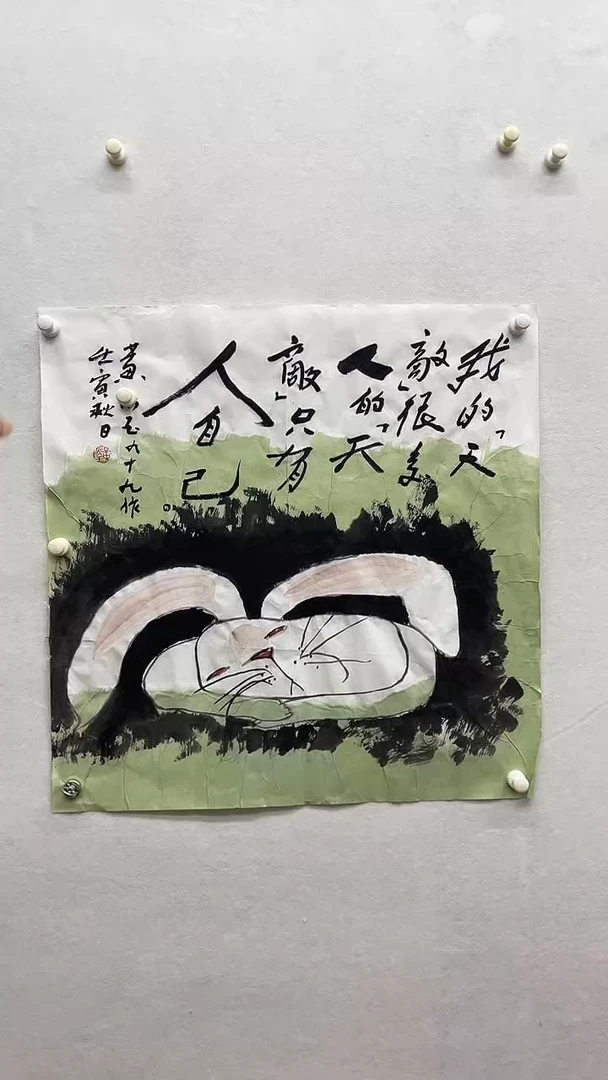 我的「天
敵」很美
人的「天
敵」只有
人自己。
黄玉九十九作
壬寅秋日